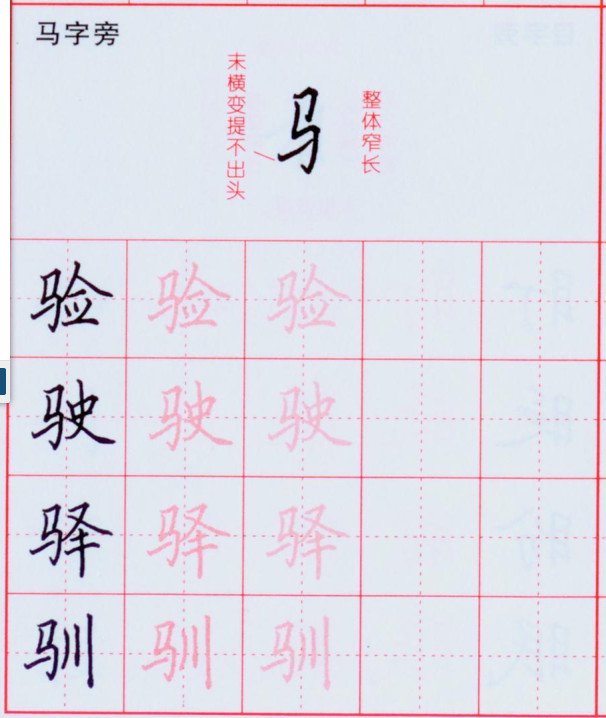 马字旁
末横变提不出头
马
整体窄长
验 验 验
驶 驶 驶
驿 驿 驿
驯 驯 驯